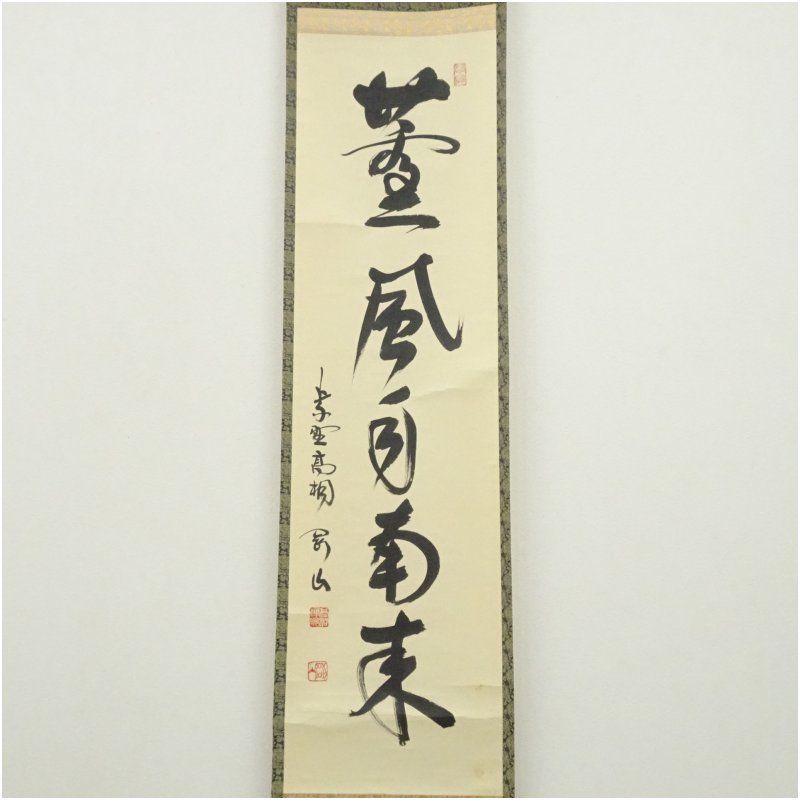 薫風自南来
紫野高桐 剛山